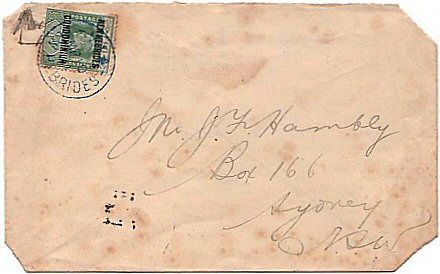 POSTAGE
BRIDES
Mr J F Hambly
Box 166
Sydney
NSW